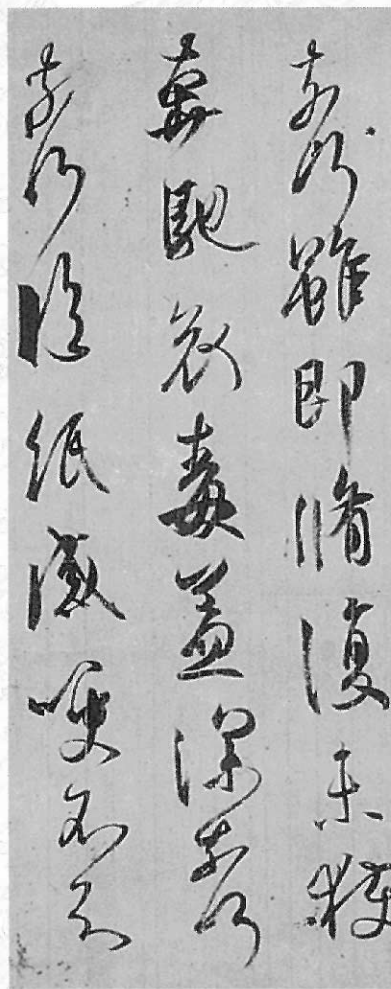 奈何雖即脩復未獲
奔馳哀毒益深奈何
奈何臨紙感哽不知